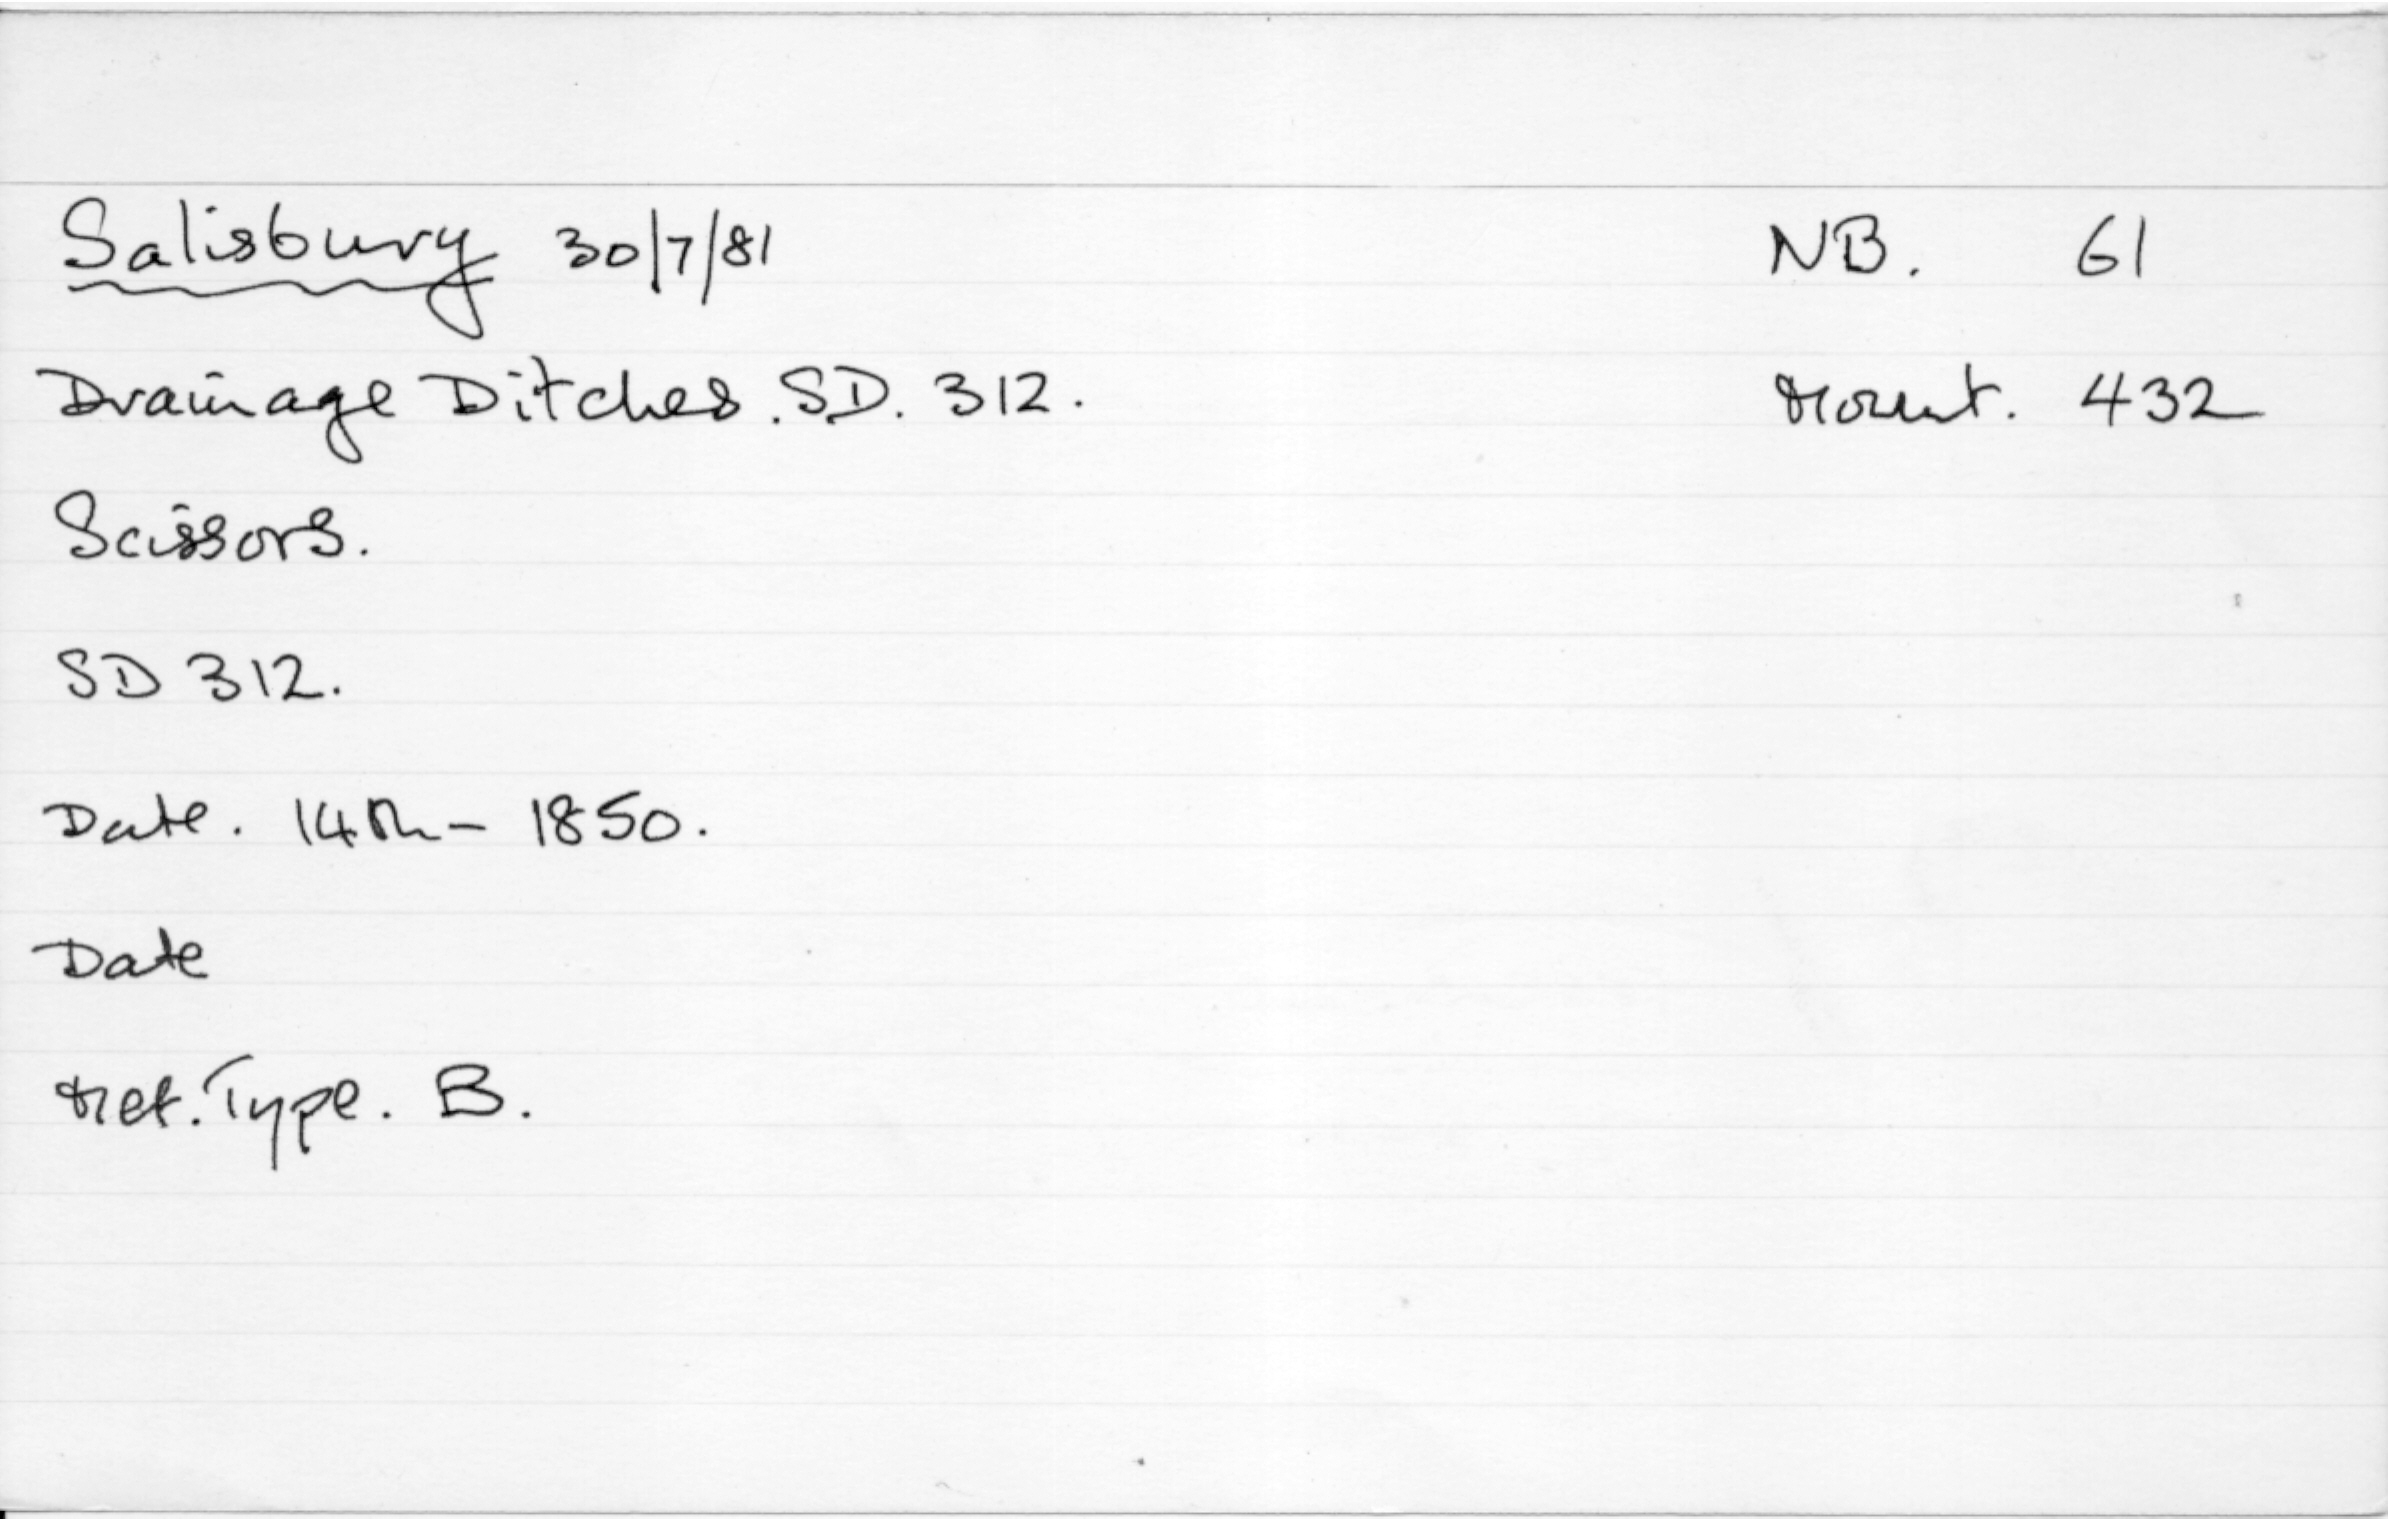 Salisbury 30/7/81 NB. 61
Drainage Ditches. SD. 312. Mount. 432
Scissors.
SD 312.
Date. 14th - 1850.
Date
Met. Type. B.